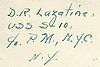 D.R. Lazatine,
USS S-10,
c/o P.M., N.Y.C.
N.Y.